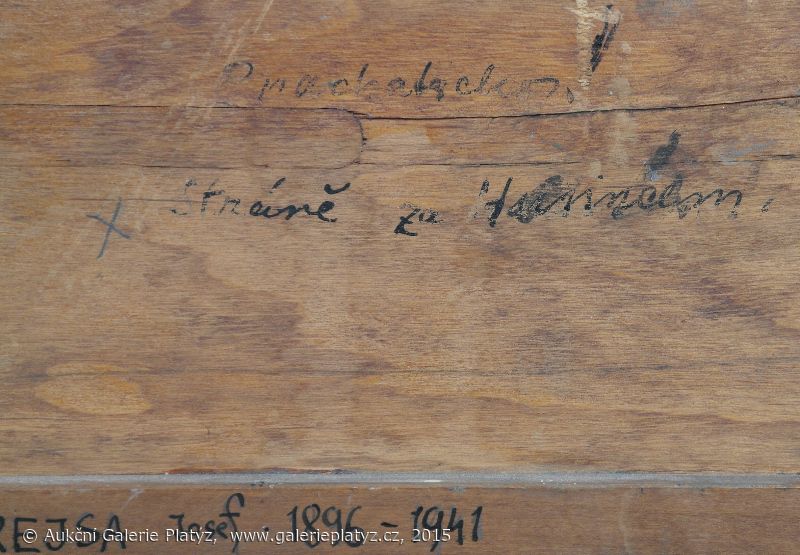 Prachaticko,
x Stráně za Husincem,
REJSA Josef. 1896-1941
© Aukční Galerie Platýz, www.galerieplatyz.cz, 2015